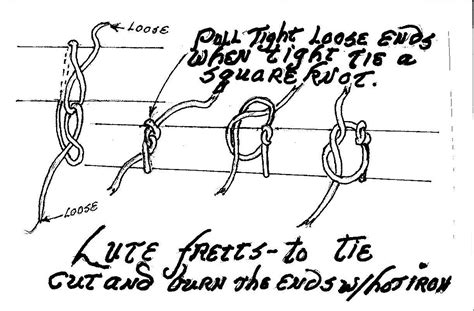 LOOSE
PULL TIGHT LOOSE ENDS
WHEN TIGHT TIE A
SQUARE KNOT.
LOOSE
LUTE FRETTS - TO TIE
CUT AND BURN THE ENDS W/HOT IRON